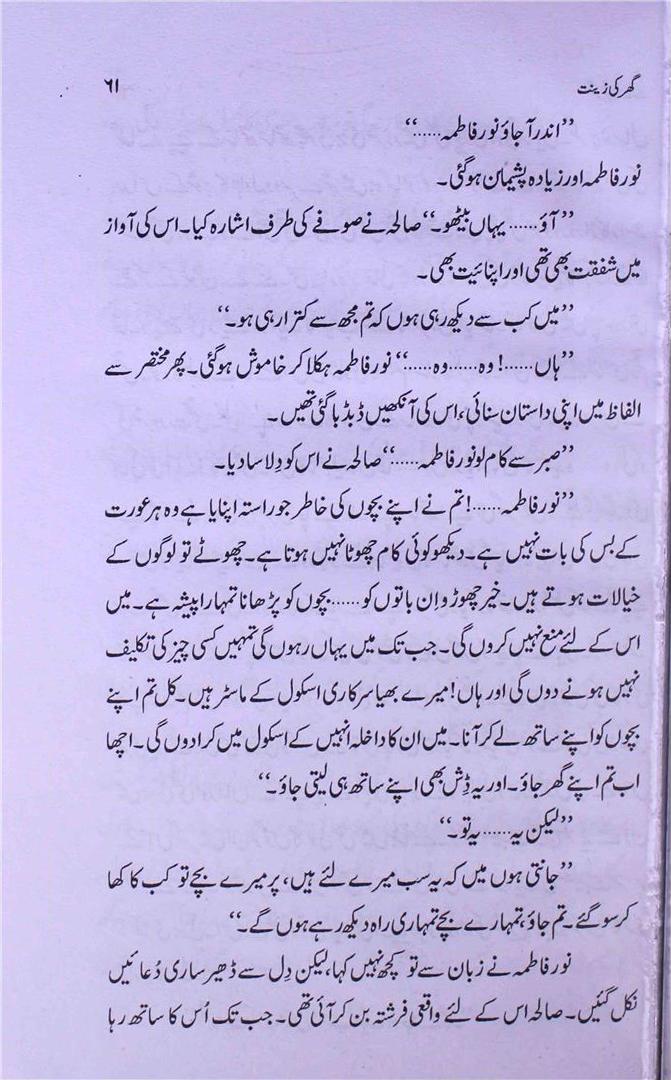 گھر کی زینت ۶۱
”اندر آجاؤ نور فاطمہ......“
نور فاطمہ اور زیادہ پشیمان ہوگئی۔
”آؤ...... یہاں بیٹھو۔“ صالحہ نے صوفے کی طرف اشارہ کیا۔ اس کی آواز
میں شفقت بھی تھی اور اپنائیت بھی۔
”میں کب سے دیکھ رہی ہوں کہ تم مجھ سے کترا رہی ہو۔“
”ہاں......! وہ......وہ......“ نور فاطمہ ہکلا کر خاموش ہوگئی۔ پھر مختصر سے
الفاظ میں اپنی داستان سنائی، اس کی آنکھیں ڈبڈبا گئی تھیں۔
”صبر سے کام لو نور فاطمہ......“ صالحہ نے اس کو دِلاسا دیا۔
”نور فاطمہ......! تم نے اپنے بچوں کی خاطر جو راستہ اپنایا ہے وہ ہر عورت
کے بس کی بات نہیں ہے۔ دیکھو کوئی کام چھوٹا نہیں ہوتا ہے۔ چھوٹے تو لوگوں کے
خیالات ہوتے ہیں۔ خیر چھوڑو اِن باتوں کو...... بچوں کو پڑھانا تمہارا پیشہ ہے۔ میں
اس کے لئے منع نہیں کروں گی۔ جب تک میں یہاں رہوں گی تمہیں کسی چیز کی تکلیف
نہیں ہونے دوں گی اور ہاں! میرے بھیا سرکاری اسکول کے ماسٹر ہیں۔ کل تم اپنے
بچوں کو اپنے ساتھ لے کر آنا۔ میں ان کا داخلہ انہیں کے اسکول میں کرا دوں گی۔ اچھا
اب تم اپنے گھر جاؤ۔ اور یہ ڈِش بھی اپنے ساتھ ہی لیتی جاؤ۔“
”لیکن یہ...... یہ تو۔“
”جانتی ہوں میں کہ یہ سب میرے لئے ہیں، پر میرے بچے تو کب کا کھا
کر سو گئے۔ تم جاؤ، تمہارے بچے تمہاری راہ دیکھ رہے ہوں گے۔“
نور فاطمہ نے زبان سے تو کچھ نہیں کہا، لیکن دِل سے ڈھیر ساری دُعائیں
نکل گئیں۔ صالحہ اس کے لئے واقعی فرشتہ بن کر آئی تھی۔ جب تک اُس کا ساتھ رہا